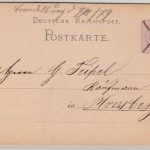 DEUTSCHE REICHSPOST.
POSTKARTE.
Herrn G. Seipel
Kaufmann
in Arnsberg